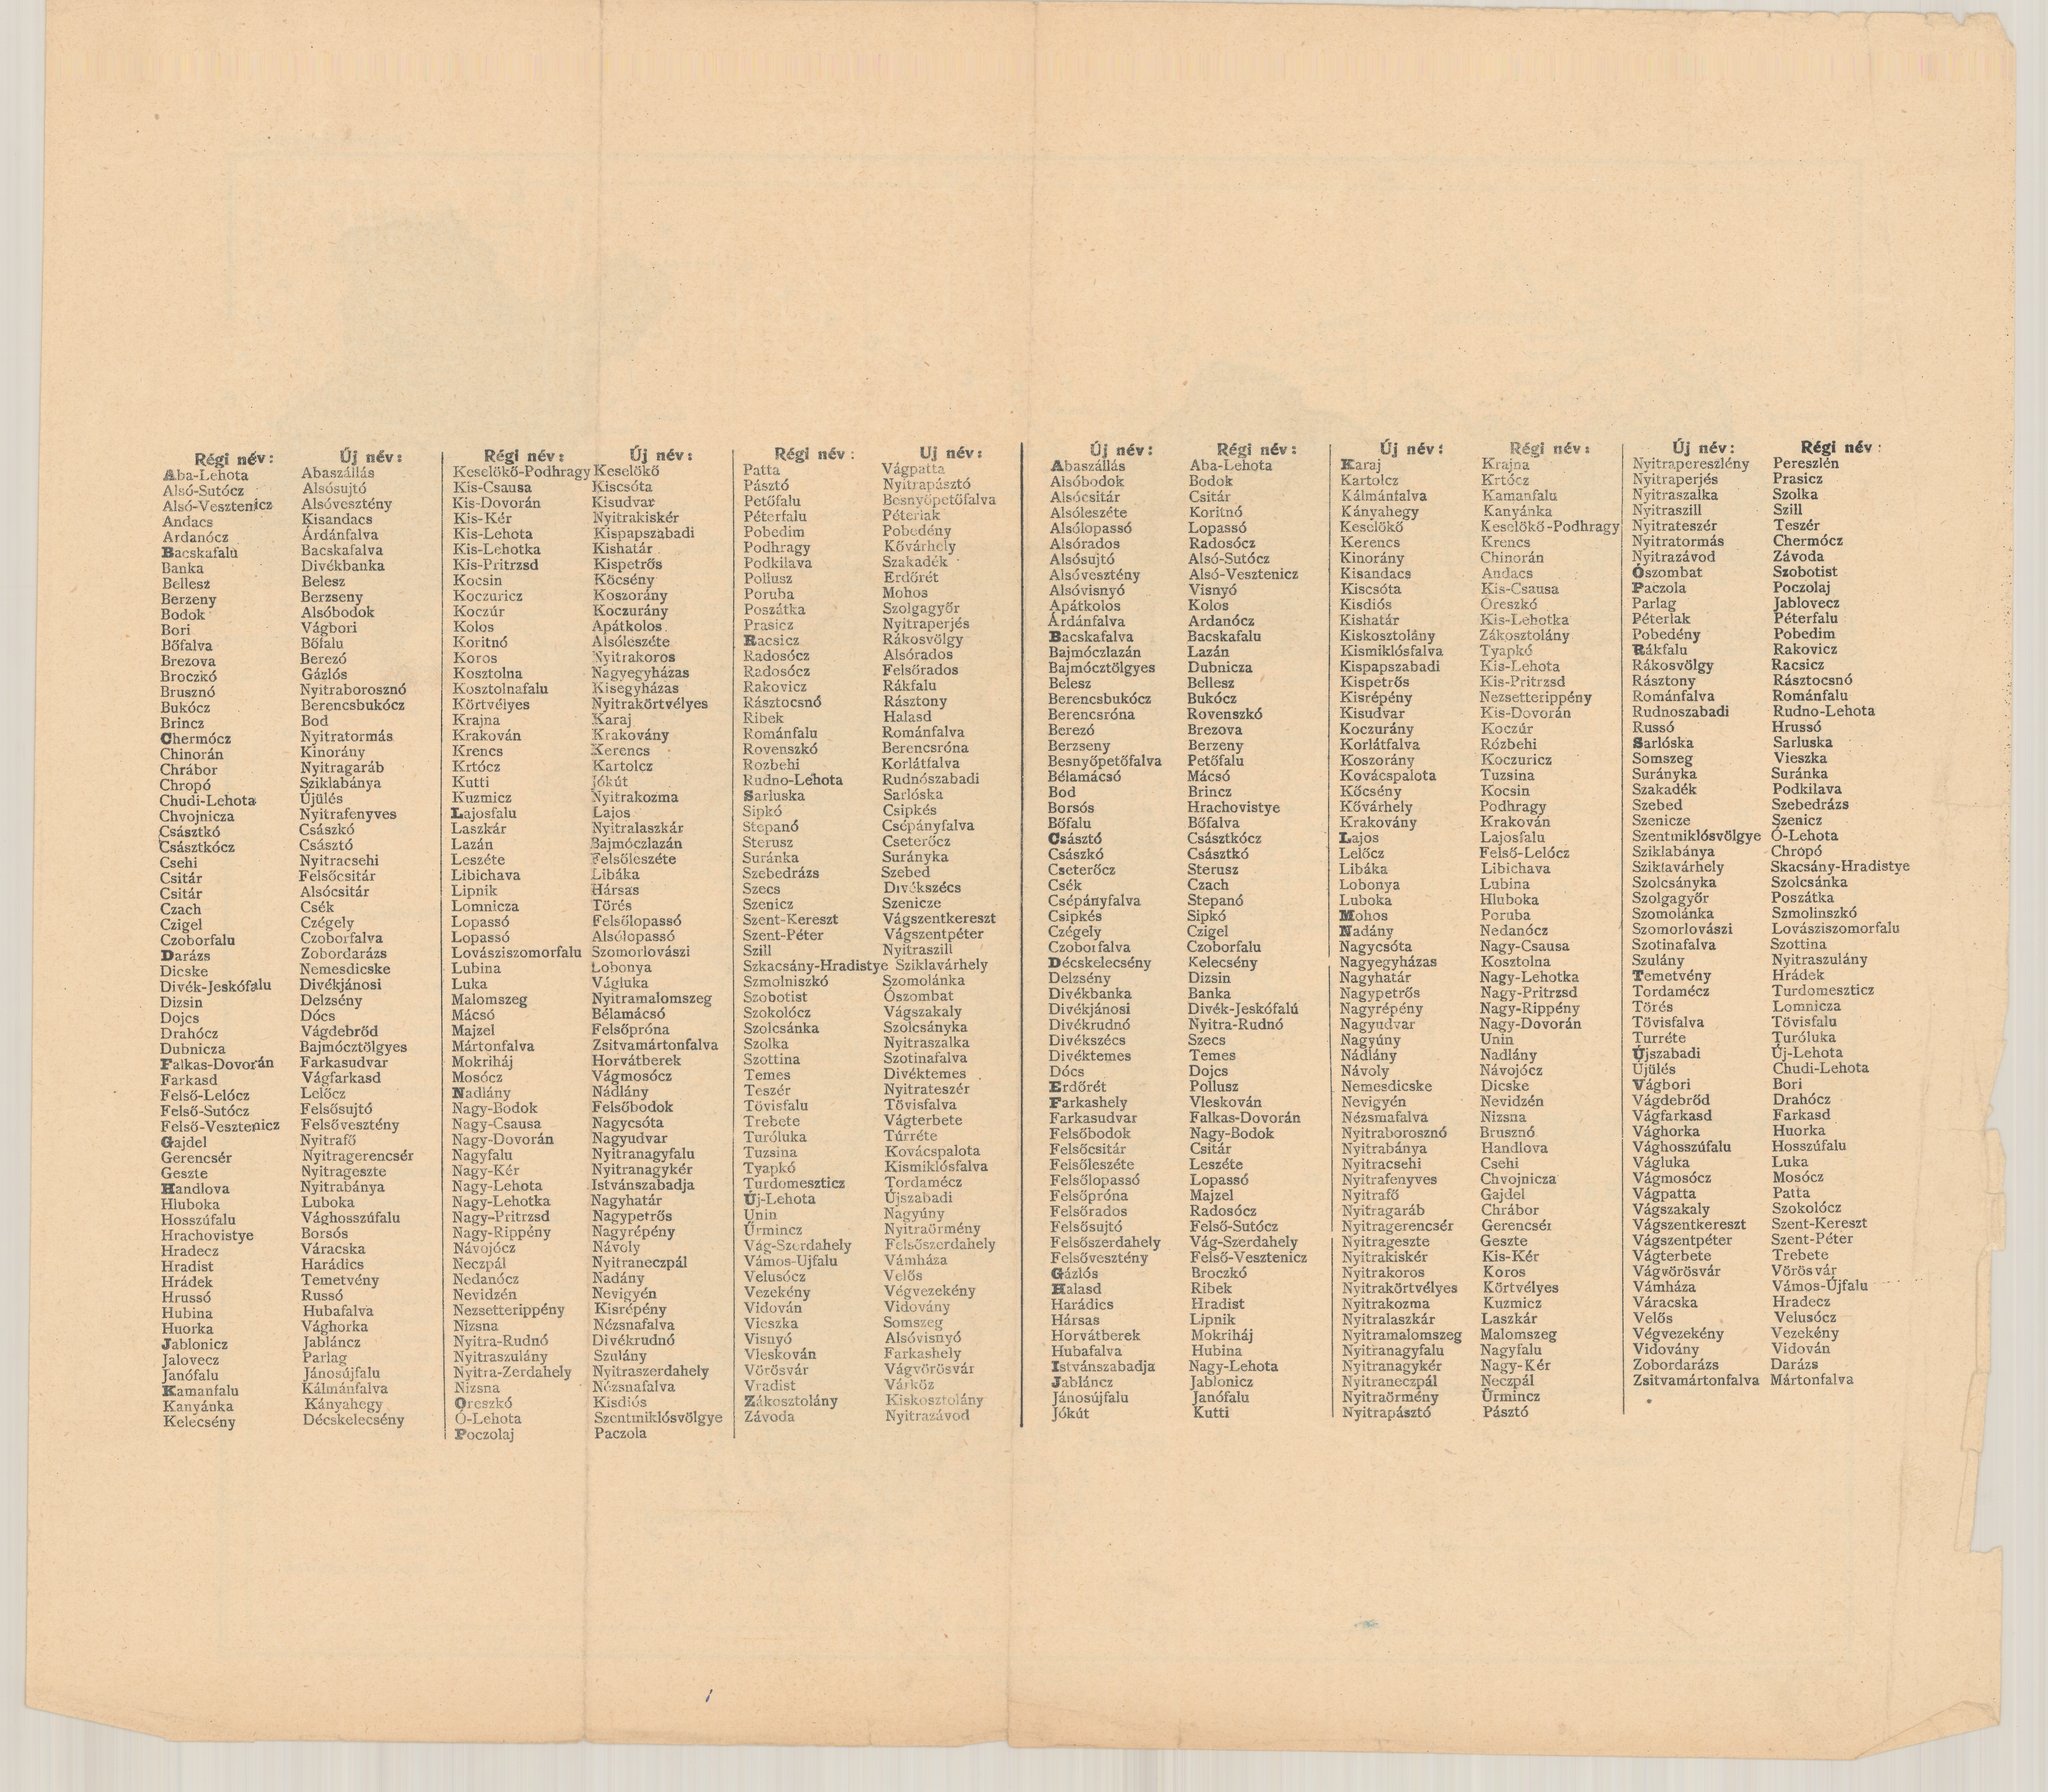 Régi név: Új név:
Aba-Lehota Abaszállás
Alsó-Sutócz Alsósujtó
Alsó-Vesztenicz Alsóvesztény
Andacs Kisandacs
Ardanócz Árdánfalva
Bacskafalu Bacskafalva
Banka Divékbanka
Bellesz Belesz
Berzeny Berzseny
Bodok Alsóbodok
Bori Vágbori
Bőfalva Bőfalu
Brezova Berezó
Broczkó Gázlós
Brusznó Nyitraborosznó
Bukócz Berencsbukócz
Brincz Bod
Chermócz Nyitratormás
Chinorán Kinorány
Chrábor Nyitragaráb
Chropó Sziklabánya
Chudi-Lehota Újülés
Chvojnicza Nyitrafenyves
Császtkó Császkó
Császtkócz Császtó
Csehi Nyitracsehi
Csitár Felsőcsitár
Csitár Alsócsitár
Czach Csék
Czigel Czégely
Czoborfalu Czoborfalva
Darázs Zobordarázs
Dicske Nemesdicske
Divék-Jeskófalu Divékjánosi
Dizsin Delzsény
Dojcs Dócs
Drahócz Vágdebrőd
Dubnicza Bajmócztölgyes
Falkas-Dovorán Farkasudvar
Farkasd Vágfarkasd
Felső-Lelócz Lelőcz
Felső-Sutócz Felsősujtó
Felső-Vesztenicz Felsővesztény
Gajdel Nyitrafő
Gerencsér Nyitragerencsér
Geszte Nyitrageszte
Handlova Nyitrabánya
Hluboka Luboka
Hosszúfalu Vághosszúfalu
Hrachovistye Borsós
Hradecz Váracska
Hradist Harádics
Hrádek Temetvény
Hrussó Russó
Hubina Hubafalva
Huorka Vághorka
Jablonicz Jabláncz
Jalovecz Parlag
Janófalu Jánosújfalu
Kamanfalu Kálmánfalva
Kanyánka Kányahegy
Kelecsény Décskelecsény
Régi név: Új név:
Keselőkő-Podhragy Keselőkő
Kis-Csausa Kiscsóta
Kis-Dovorán Kisudvar
Kis-Kér Nyitrakiskér
Kis-Lehota Kispapszabadi
Kis-Lehotka Kishatár
Kis-Pritrzsd Kispetrős
Kocsin Köcsény
Koczuricz Koszorány
Koczúr Koczurány
Kolos Apátkolos
Koritnó Alsóleszéte
Koros Nyitrakoros
Kosztolna Nagyegyházas
Kosztolnafalu Kisegyházas
Körtvélyes Nyitrakörtvélyes
Krajna Karaj
Krakován Krakovány
Krencs Kerencs
Krtócz Kartolcz
Kutti Jókút
Kuzmicz Nyitrakozma
Lajosfalu Lajos
Laszkár Nyitralaszkár
Lazán Bajmóczlazán
Leszéte Felsőleszéte
Libichava Libáka
Lipnik Hársas
Lomnicza Törés
Lopassó Felsőlopassó
Lopassó Alsólopassó
Lovásziszomorfalu Szomorlovászi
Lubina Lobonya
Luka Vágluka
Malomszeg Nyitramalomszeg
Mácsó Bélamácsó
Majzel Felsőpróna
Mártonfalva Zsitvamártonfalva
Mokriháj Horvátberek
Mosócz Vágmosócz
Nadlány Nádlány
Nagy-Bodok Felsőbodok
Nagy-Csausa Nagycsóta
Nagy-Dovorán Nagyudvar
Nagyfalu Nyitranagyfalu
Nagy-Kér Nyitranagykér
Nagy-Lehota Istvánszabadja
Nagy-Lehotka Nagyhatár
Nagy-Pritrzsd Nagypetrős
Nagy-Rippény Nagyrépény
Návojócz Návoly
Neczpál Nyitraneczpál
Nedanócz Nadány
Nevidzén Nevigyén
Nezsetterippény Kisrépény
Nizsna Nézsnafalva
Nyitra-Rudnó Divékrudnó
Nyitraszulány Szulány
Nyitra-Zerdahely Nyitraszerdahely
Nizsna Nézsnafalva
Oreszkó Kisdiós
Ó-Lehota Szentmiklósvölgye
Poczolaj Paczola
Régi név: Uj név:
Patta Vágpatta
Pásztó Nyitrapásztó
Petőfalu Besnyőpetőfalva
Péterfalu Péterlak
Pobedim Pobedény
Podhragy Kővárhely
Podkilava Szakadék
Pollusz Erdőrét
Poruba Mohos
Poszátka Szolgagyőr
Prasicz Nyitraperjés
Racsicz Rákosvölgy
Radosócz Alsórados
Radosócz Felsőrados
Rakovicz Rákfalu
Rásztocsnó Rásztony
Ribek Halasd
Románfalu Románfalva
Rovenszkó Berencsróna
Rozbehi Korlátfalva
Rudno-Lehota Rudnószabadi
Sarluska Sarlóska
Sipkó Csipkés
Stepanó Csépányfalva
Sterusz Cseterőcz
Suránka Surányka
Szebedrázs Szebed
Szecs Divékszécs
Szenicz Szenicze
Szent-Kereszt Vágszentkereszt
Szent-Péter Vágszentpéter
Szill Nyitraszill
Szkacsány-Hradistye Sziklavárhely
Szmolniszkó Szomolánka
Szobotist Ószombat
Szokolócz Vágszakaly
Szolcsánka Szolcsányka
Szolka Nyitraszalka
Szottina Szotinafalva
Temes Divéktemes
Teszér Nyitrateszér
Tövisfalu Tövisfalva
Trebete Vágterbete
Turóluka Túrréte
Tuzsina Kovácspalota
Tyapkó Kismiklósfalva
Turdomeszticz Tordamécz
Új-Lehota Újszabadi
Unin Nagyúny
Űrmincz Nyitraörmény
Vág-Szerdahely Felsőszerdahely
Vámos-Ujfalu Vámháza
Velusócz Velős
Vezekény Végvezekény
Vidován Vidovány
Vieszka Somszeg
Visnyó Alsóvisnyó
Vleskován Farkashely
Vörösvár Vágvörösvár
Vradist Várköz
Zákosztolány Kiskosztolány
Závoda Nyitrazávod
Új név: Régi név:
Abaszállás Aba-Lehota
Alsóbodok Bodok
Alsócsitár Csitár
Alsóleszéte Koritnó
Alsólopassó Lopassó
Alsórados Radosócz
Alsósujtó Alsó-Sutócz
Alsóvesztény Alsó-Vesztenicz
Alsóvisnyó Visnyó
Apátkolos Kolos
Árdánfalva Ardanócz
Bacskafalva Bacskafalu
Bajmóczlazán Lazán
Bajmócztölgyes Dubnicza
Belesz Bellesz
Berencsbukócz Bukócz
Berencsróna Rovenszkó
Berezó Brezova
Berzseny Berzeny
Besnyőpetőfalva Petőfalu
Bélamácsó Mácsó
Bod Brincz
Borsós Hrachovistye
Bőfalu Bőfalva
Császtó Császtkócz
Császkó Császtkó
Cseterőcz Sterusz
Csék Czach
Csépányfalva Stepanó
Csipkés Sipkó
Czégely Czigel
Czoborfalva Czoborfalu
Décskelecsény Kelecsény
Delzsény Dizsin
Divékbanka Banka
Divékjánosi Divék-Jeskófalú
Divékrudnó Nyitra-Rudnó
Divékszécs Szecs
Divéktemes Temes
Dócs Dojcs
Erdőrét Pollusz
Farkashely Vleskován
Farkasudvar Falkas-Dovorán
Felsőbodok Nagy-Bodok
Felsőcsitár Csitár
Felsőleszéte Leszéte
Felsőlopassó Lopassó
Felsőpróna Majzel
Felsőrados Radosócz
Felsősujtó Felső-Sutócz
Felsőszerdahely Vág-Szerdahely
Felsővesztény Felső-Vesztenicz
Gázlós Broczkó
Halasd Ribek
Harádics Hradist
Hársas Lipnik
Horvátberek Mokriháj
Hubafalva Hubina
Istvánszabadja Nagy-Lehota
Jabláncz Jablonicz
Jánosújfalu Janófalu
Jókút Kutti
Új név: Régi név:
Karaj Krajna
Kartolcz Krtócz
Kálmánfalva Kamanfalu
Kányahegy Kanyánka
Keselőkő Keselőkő-Podhragy
Kerencs Krencs
Kinorány Chinorán
Kisandacs Andacs
Kiscsóta Kis-Csausa
Kisdiós Oreszkó
Kishatár Kis-Lehotka
Kiskosztolány Zákosztolány
Kismiklósfalva Tyapkó
Kispapszabadi Kis-Lehota
Kispetrős Kis-Pritrzsd
Kisrépény Nezsetterippény
Kisudvar Kis-Dovorán
Koczurány Koczúr
Korlátfalva Rózbehi
Koszorány Koczuricz
Kovácspalota Tuzsina
Kőcsény Kocsin
Kővárhely Podhragy
Krakovány Krakován
Lajos Lajosfalu
Lelőcz Felső-Lelócz
Libáka Libichava
Lobonya Lubina
Luboka Hluboka
Mohos Poruba
Nadány Nedanócz
Nagycsóta Nagy-Csausa
Nagyegyházas Kosztolna
Nagyhatár Nagy-Lehotka
Nagypetrős Nagy-Pritrzsd
Nagyrépény Nagy-Rippény
Nagyudvar Nagy-Dovorán
Nagyúny Unin
Nádlány Nadlány
Návoly Návojócz
Nemesdicske Dicske
Nevigyén Nevidzén
Nézsmafalva Nizsna
Nyitraborosznó Brusznó
Nyitrabánya Handlova
Nyitracsehi Csehi
Nyitrafenyves Chvojnicza
Nyitrafő Gajdel
Nyitragaráb Chrábor
Nyitragerencsér Gerencsér
Nyitrageszte Geszte
Nyitrakiskér Kis-Kér
Nyitrakoros Koros
Nyitrakörtvélyes Körtvélyes
Nyitrakozma Kuzmicz
Nyitralaszkár Laszkár
Nyitramalomszeg Malomszeg
Nyitranagyfalu Nagyfalu
Nyitranagykér Nagy-Kér
Nyitraneczpál Neczpál
Nyitraörmény Űrmincz
Nyitrapásztó Pásztó
Új név: Régi név:
Nyitrapereszlény Pereszlén
Nyitraperjés Prasicz
Nyitraszalka Szolka
Nyitraszill Szill
Nyitrateszér Teszér
Nyitratormás Chermócz
Nyitrazávod Závoda
Ószombat Szobotist
Paczola Poczolaj
Parlag Jablovecz
Péterlak Péterfalu
Pobedény Pobedim
Rákfalu Rakovicz
Rákosvölgy Racsicz
Rásztony Rásztocsnó
Románfalva Románfalu
Rudnoszabadi Rudno-Lehota
Russó Hrussó
Sarlóska Sarluska
Somszeg Vieszka
Surányka Suránka
Szakadék Podkilava
Szebed Szebedrázs
Szenicze Szenicz
Szentmiklósvölgye Ó-Lehota
Sziklabánya Chropó
Sziklavárhely Skacsány-Hradistye
Szolcsányka Szolcsánka
Szolgagyőr Poszátka
Szomolánka Szmolinszkó
Szomorlovászi Lovásziszomorfalu
Szotinafalva Szottina
Szulány Nyitraszulány
Temetvény Hrádek
Tordamécz Turdomeszticz
Törés Lomnicza
Tövisfalva Tövisfalu
Turréte Turóluka
Újszabadi Új-Lehota
Újülés Chudi-Lehota
Vágbori Bori
Vágdebrőd Drahócz
Vágfarkasd Farkasd
Vághorka Huorka
Vághosszúfalu Hosszúfalu
Vágluka Luka
Vágmosócz Mosócz
Vágpatta Patta
Vágszakaly Szokolócz
Vágszentkereszt Szent-Kereszt
Vágszentpéter Szent-Péter
Vágterbete Trebete
Vágvörösvár Vörösvár
Vámháza Vámos-Újfalu
Váracska Hradecz
Velős Velusócz
Végvezekény Vezekény
Vidovány Vidován
Zobordarázs Darázs
Zsitvamártonfalva Mártonfalva